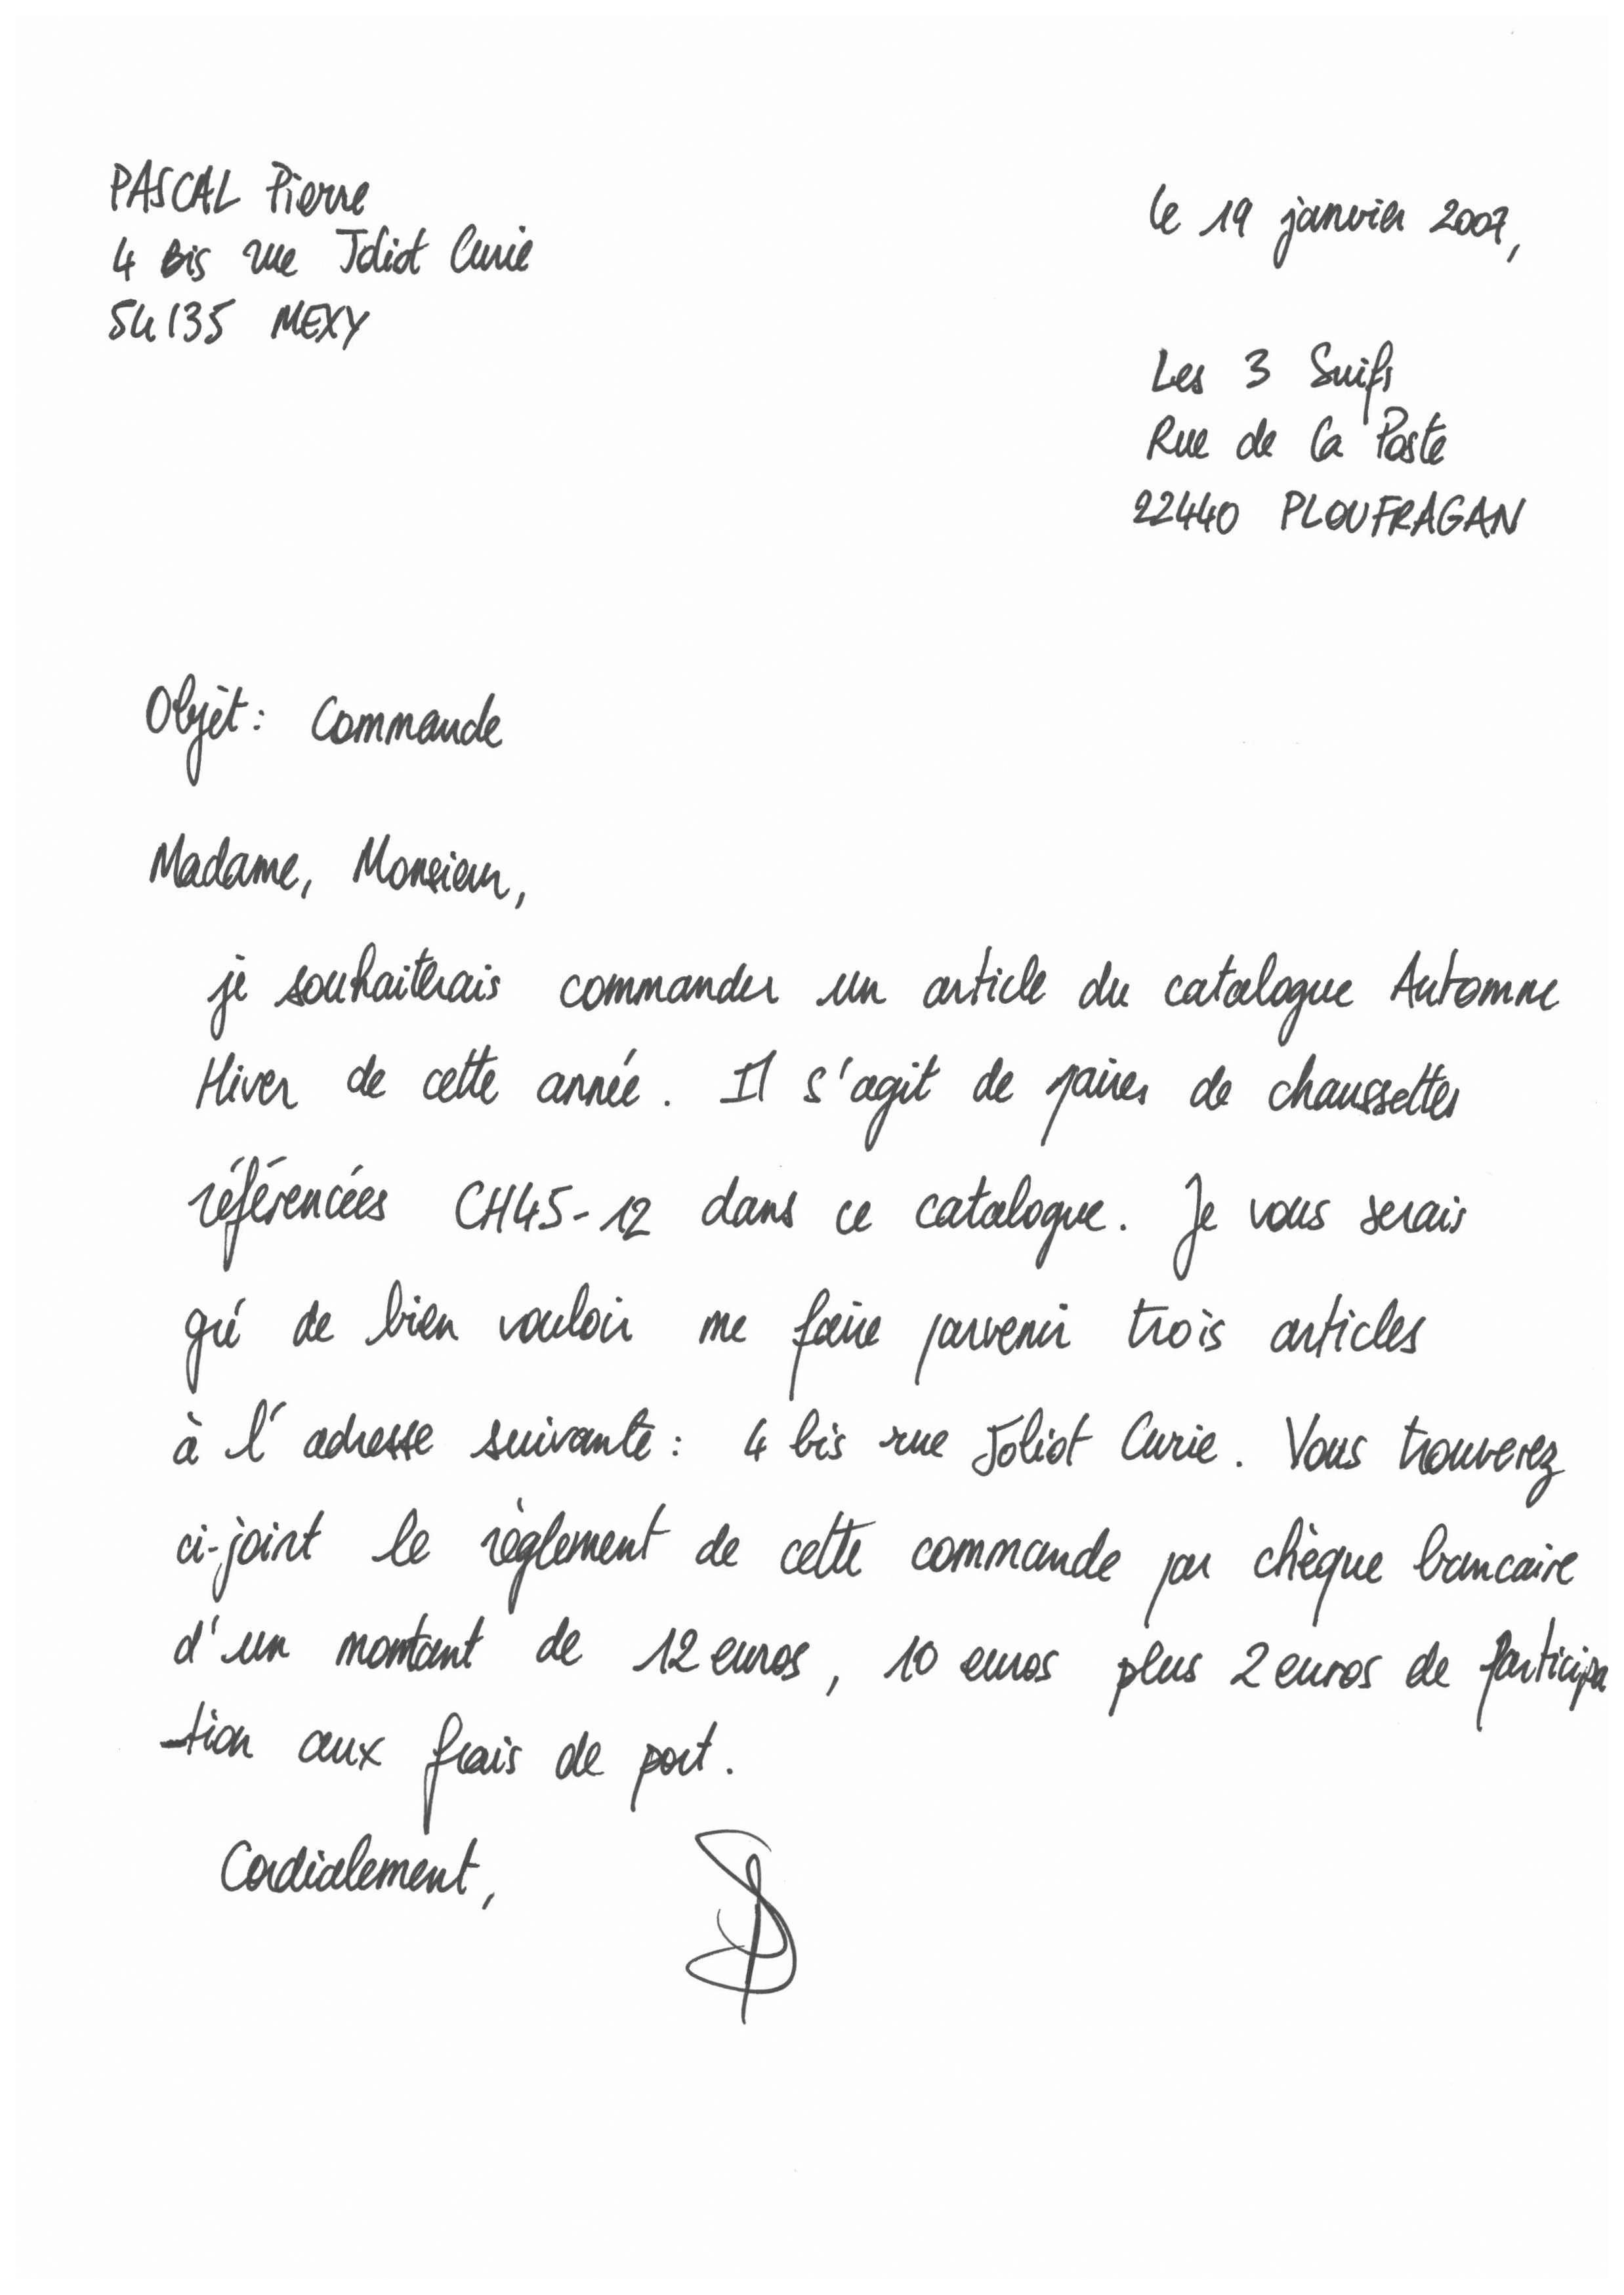 PASCAL Pierre
4 Bis rue Joliot Curie
54135 MEXY
le 19 janvier 2007,
Les 3 Suifs
Rue de la Poste
22440 PLOUFRAGAN
Objèt : Commande
Madame, Monsieur,
je souhaiterais commander un article du catalogue Automne
Hiver de cette année. Il s'agit de paires de chaussettes
référencées CH45-12 dans ce catalogue. Je vous serais
gré de bien vouloir me faire parvenir trois articles
à l'adresse suivante : 4 bis rue Joliot Curie. Vous trouverez
ci-joint le règlement de cette commande par chèque bancaire
d'un montant de 12 euros, 10 euros plus 2 euros de participa
-tion aux frais de port.
Cordialement,